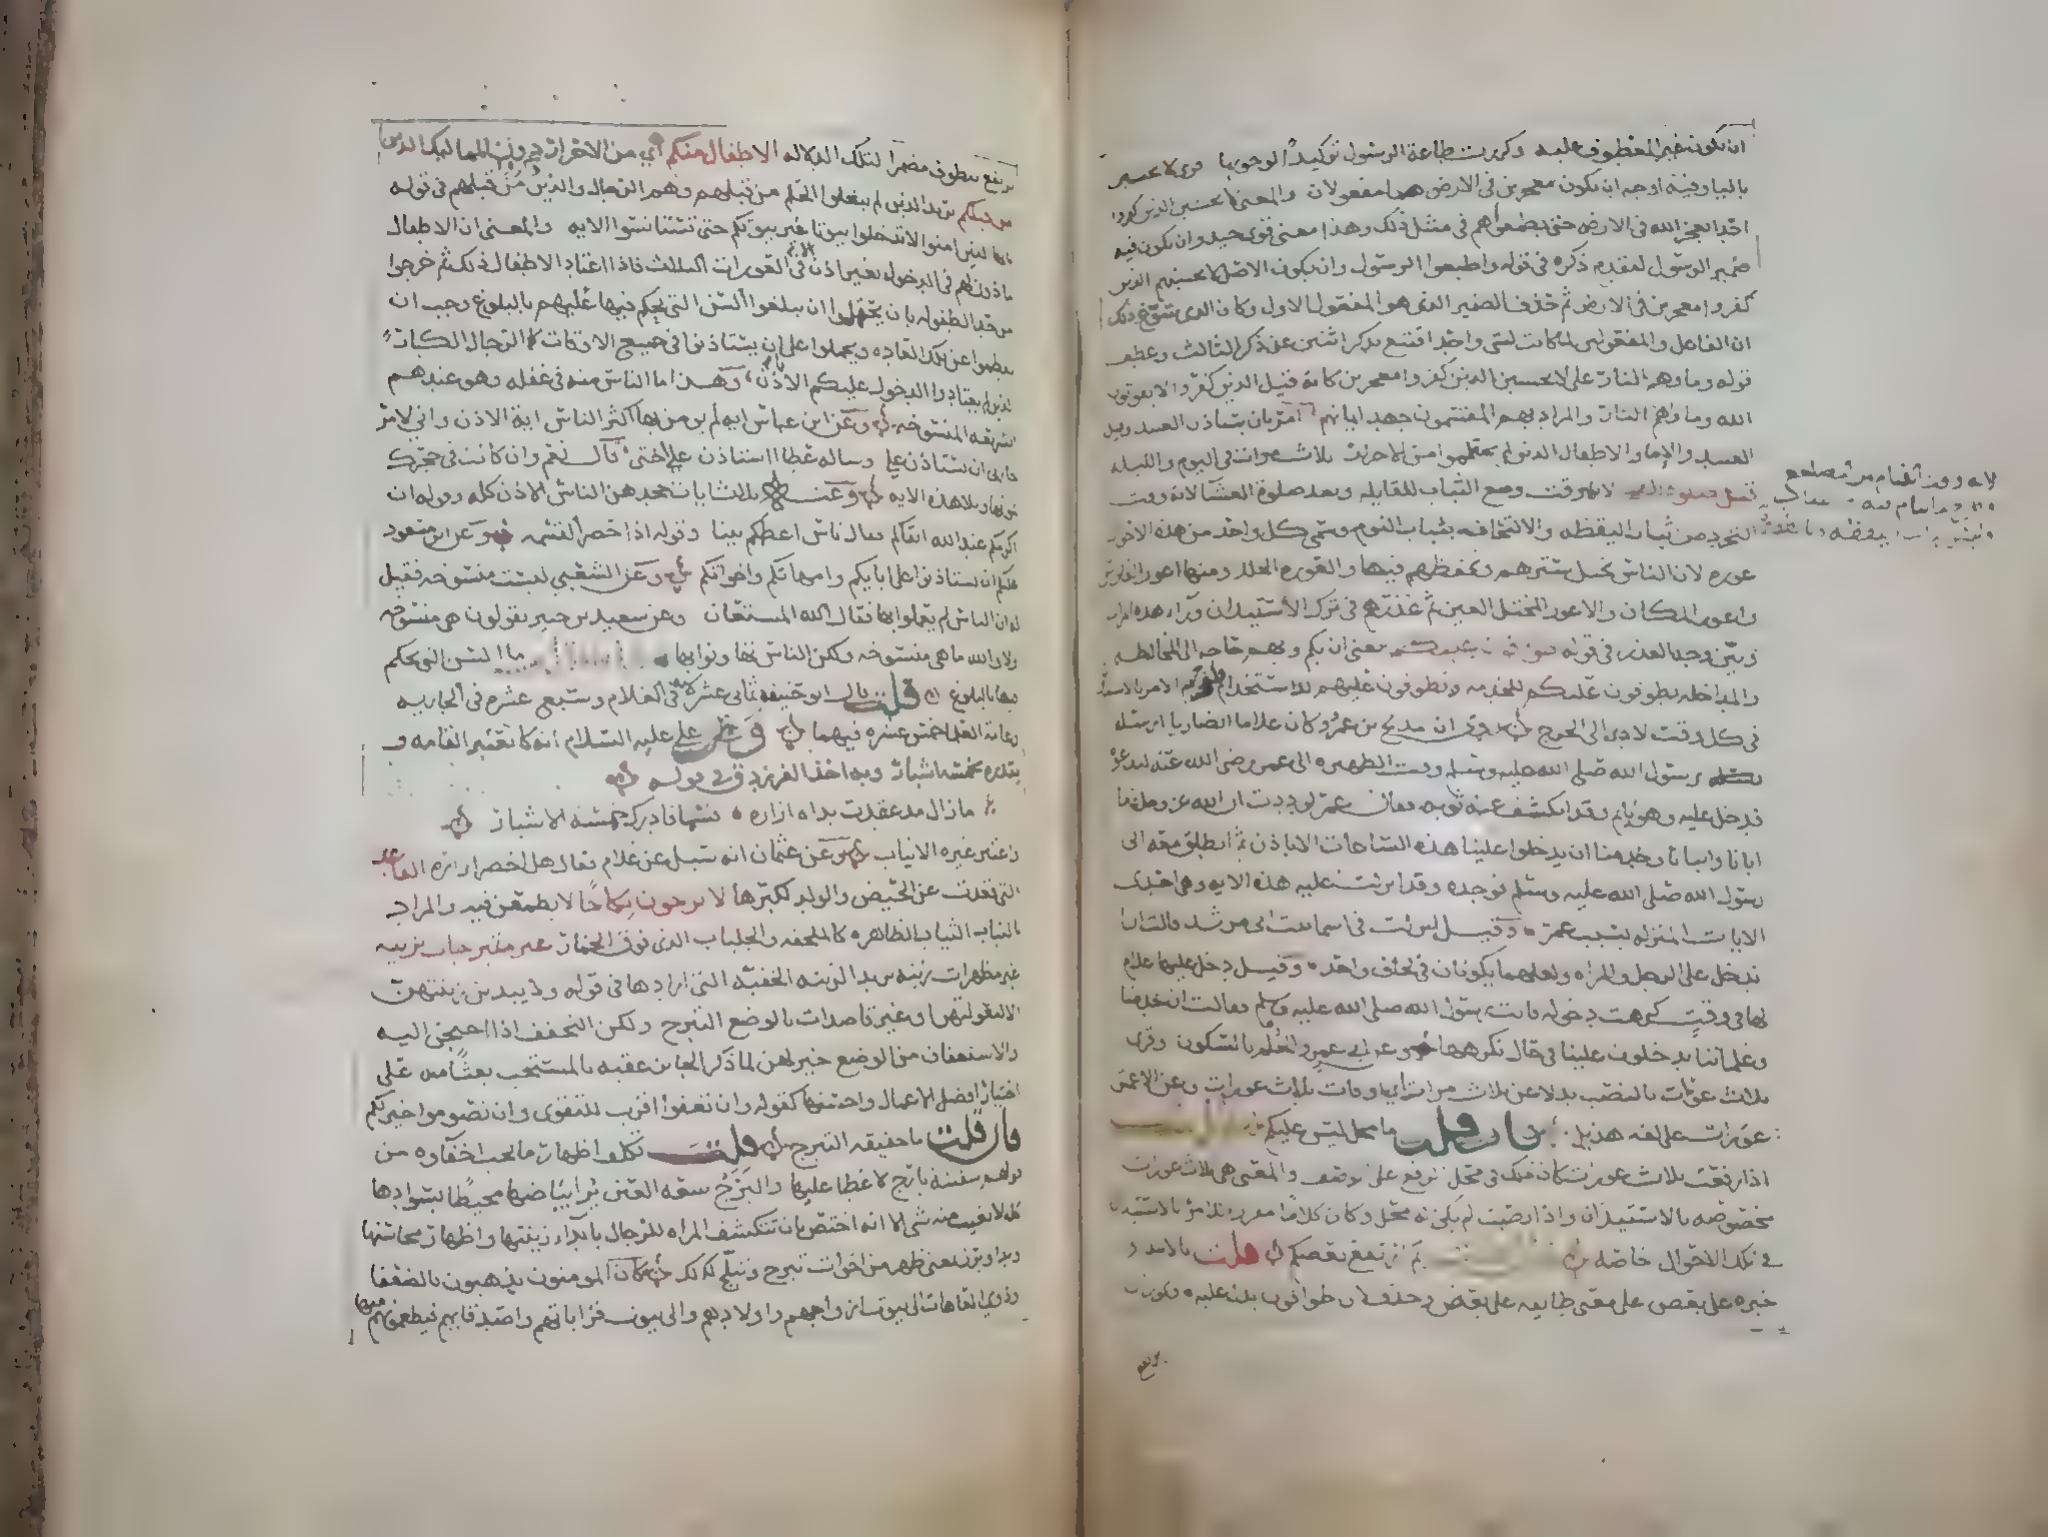 ان يكون غير المعطوف عليه وكررت طاعة الرسول توكيدًا لوجوبها وقرى لا يحسبن
بالياء وفيه اوجه ان يكون معجزين في الارض هما مفعولان والمعنى لا يحسبن الذين كفروا
احدا يعجز الله في الارض حتى يطمعوا هم في مثل ذلك وهذا معنى قوى جيد وان يكون فيه
ضمير الرسول لتقدم ذكره في قوله واطيعوا الرسول وان يكون الاصل لا يحسبنهم الذين
كفروا معجزين في الارض ثم حذف الضمير الذى هو المفعول الاول وكان الذى سوغ ذلك
ان الفاعل والمفعولين لما كانت لشى واحد اقتنع بذكر اثنين عن ذكر الثالث وعطف
قوله وماوهم النار على لا يحسبن الذين كفروا معجزين كانه قيل الذين كفروا لا يفوتون
الله وماواهم النار والمراد بهم المقسمون جهد ايمانهم امر بان يستاذن العبيد وقيل
العبيد والاما والاطفال الذين لم يحتلموا من الاحرار ثلاث مرات في اليوم والليله
قبل صلوة الفجر لانه وقت وضع الثياب للقايله وبعد صلوة العشا لانه وقت
التجرد من ثياب اليقظه والالتحاف بثياب النوم وسمى كل واحد من هذه الاحوال
عوره لان الناس يختل تسترهم وتحفظهم فيها والعوره الخلل ومنها اعور الفارس
واعور المكان والاعور المختل العين ثم عذرهم في ترك الاستيذان ورآء هذه المرات
وبين وجه العذر في قوله طوافون عليكم يعنى ان بكم وبهم حاجه الى المخالطه
والمداخله يطوفون عليكم للخدمه وتطوفون عليهم للاستخدام فلو جزم الامر بالاستيذان
في كل وقت لادى الى الحرج وروى ان مدلج بن عمرو وكان غلاما انصاريا ارسله
رسول الله صلى الله عليه وسلم وقت الظهيره الى عمر رضى الله عنه ليدعوه
فدخل عليه وهو نايم وقد انكشف عنه ثوبه فقال عمر لوددت ان الله عز وجل نها
ابانا وابناناوخدمنا ان يدخلوا علينا هذه الساعات الا باذن ثم انطلق معه الى
رسول الله صلى الله عليه وسلم فوجده وقد انزلت عليه هذه الايه وهى احدى
الايات المنزله بسبب عمر وقيل نزلت في اسما بنت ابى مرشد قالت انا
لندخل على الرجل والمراه ولعلهما يكونان في لحاف واحد وقيل دخل عليها غلام
لها في وقت كرهت دخوله فاتت رسول الله صلى الله عليه وسلم فقالت ان خدمنا
وغلماننا يدخلون علينا في حال نكرهها وعن ابى عمرو الحلم بالسكون وقرى
ثلاث عورات بالنصب بدلا عن ثلاث مرات اى اوقات ثلاث عورات وعن الاعمش
عورات على لغه هذيل فان قلت ما محل ليس عليكم قلت
اذا رفعت ثلاث عورات كان ذلك في محل الرفع على الوصف والمعنى هن ثلاث عورات
مخصوصه بالاستيذان واذا نصبت لم يكن له محل وكان كلاما مقررا للامر بالاستيذان
في تلك الاحوال خاصه بم ارتفع بعضكم قلت بالابتدا و
خبره على بعض على معنى طايف على بعض وحذف لان طوافون يدل عليه ويكون ان
يرتفع
يرتفع بيطوف مضمرا لتلك الدلاله الاطفال منكم اي من الاحرار دون المماليك الذين
من قبلكم يريد الذين لم يبلغوا الحلم من قبلهم وهم الرجال والذين من قبلهم في قوله
الذين امنوا لا تدخلوا بيوتا غير بيوتكم حتى تستانسوا الايه والمعنى ان الاطفال
ماذون لهم في الدخول بغير اذن الا في العورات الثلاث فاذا اعتاد الاطفال ذلك ثم خرجوا
من حد الطفوله بان يحتلموا ان يبلغوا السن التى يحكم فيها عليهم بالبلوغ وجب ان
يفطموا عن تلك العاده ويحملوا على ان يستاذنوا في جميع الاوقات كالرجال الكبار
الذين لم يعتادوا الدخول عليكم الا باذن وهذا مما الناس منه في غفله وهو عندهم
الشريعه المنسوخه وعن ابن عباس ايه لم يومن بها اكثر الناس اية الاذن وانى لامر
جاريتى ان تستاذن على وساله عطا ااستاذن على اختى قال نعم وان كانت في حجرك
تمونها وتلا هذه الايه وعنه ثلاث ايات جحدهن الناس الاذن كله وقوله ان
اكرمكم عند الله اتقاكم فقال ناس اعظمكم بيتا وقوله اذا حضر القسمه وعن ابن مسعود
عليكم ان تستاذنوا على ابايكم وامهاتكم واخواتكم وعن الشعبي ليست منسوخه فقيل
له ان الناس لم يعملوا بها فقال الله المستعان وعن سعيد بن جبير يقولون هى منسوخه
ولا والله ما هى منسوخه ولكن الناس تهاونوا بها ما السن التى يحكم
فيها بالبلوغ قلت قال ابو حنيفه ثمانى عشره سنه في الغلام وسبع عشره في الجاريه
وعامة العلما خمس عشره فيهما وعن على عليه السلام انه كان يعتبر القامه و
يقدره بخمسه اشبار وبه اخذ الفرزدق في قوله
ما زال مذ عقدت يداه ازاره فسما فادرك خمسة الاشبار
واعتبر غيره الانبات وعن عثمان انه سئل عن غلام فقال هل اخضر ازاره القاعد
التى قعدت عن الحيض والولد لكبرها لا يرجون نكاحًا لا يطمعن فيه والمراد
بالثياب الثياب الظاهره كالملحفه والجلباب الذى فوق الخمار غير متبرجات بزينه
غير مظهرات زينه يريد الزينه الخفيه التى ارادها في قوله ولا يبدين زينتهن
الا لبعولتهن او غير قاصدات بالوضع التبرج ولكن التخفف اذا احتجن اليه
والاستعفاف من الوضع خير لهن لما ذكر الجايز عقبه بالمستحب بعثًا منه على
اختيار افضل الاعمال واحسنها كقوله وان تعفوا اقرب للتقوى وان تصوموا خير لكم
فان قلت ما حقيقه التبرج قلت تكلف اظهار ما يجب اخفآوه من
قولهم سفينه بارج لا غطا عليها والبرج سعة العين يرا بياضها محيطًا بسوادها
كله لا يغيب منه شى الا انه اختص بان تتكشف المراه للرجال بابدآء زينتها واظهار محاسنها
وبدا وبرز بمعنى ظهر من اخوات تبرج وتبلج كذلك كان المومنون يذهبون بالضعفا
وذوي العاهات الى بيوت ازواجهم واولادهم والى بيوت قراباتهم واصدقايهم فيطعمونهم منها